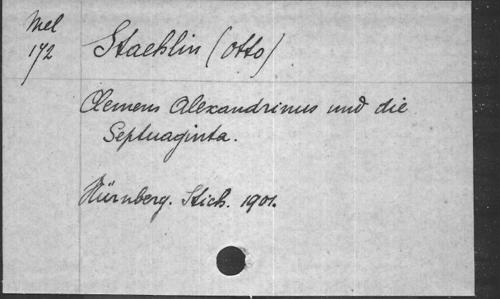 Mel
172
Staehlin (Otto)
Clemens Alexandrinus und die
Septuaginta.
Nürnberg. Stich. 1901.